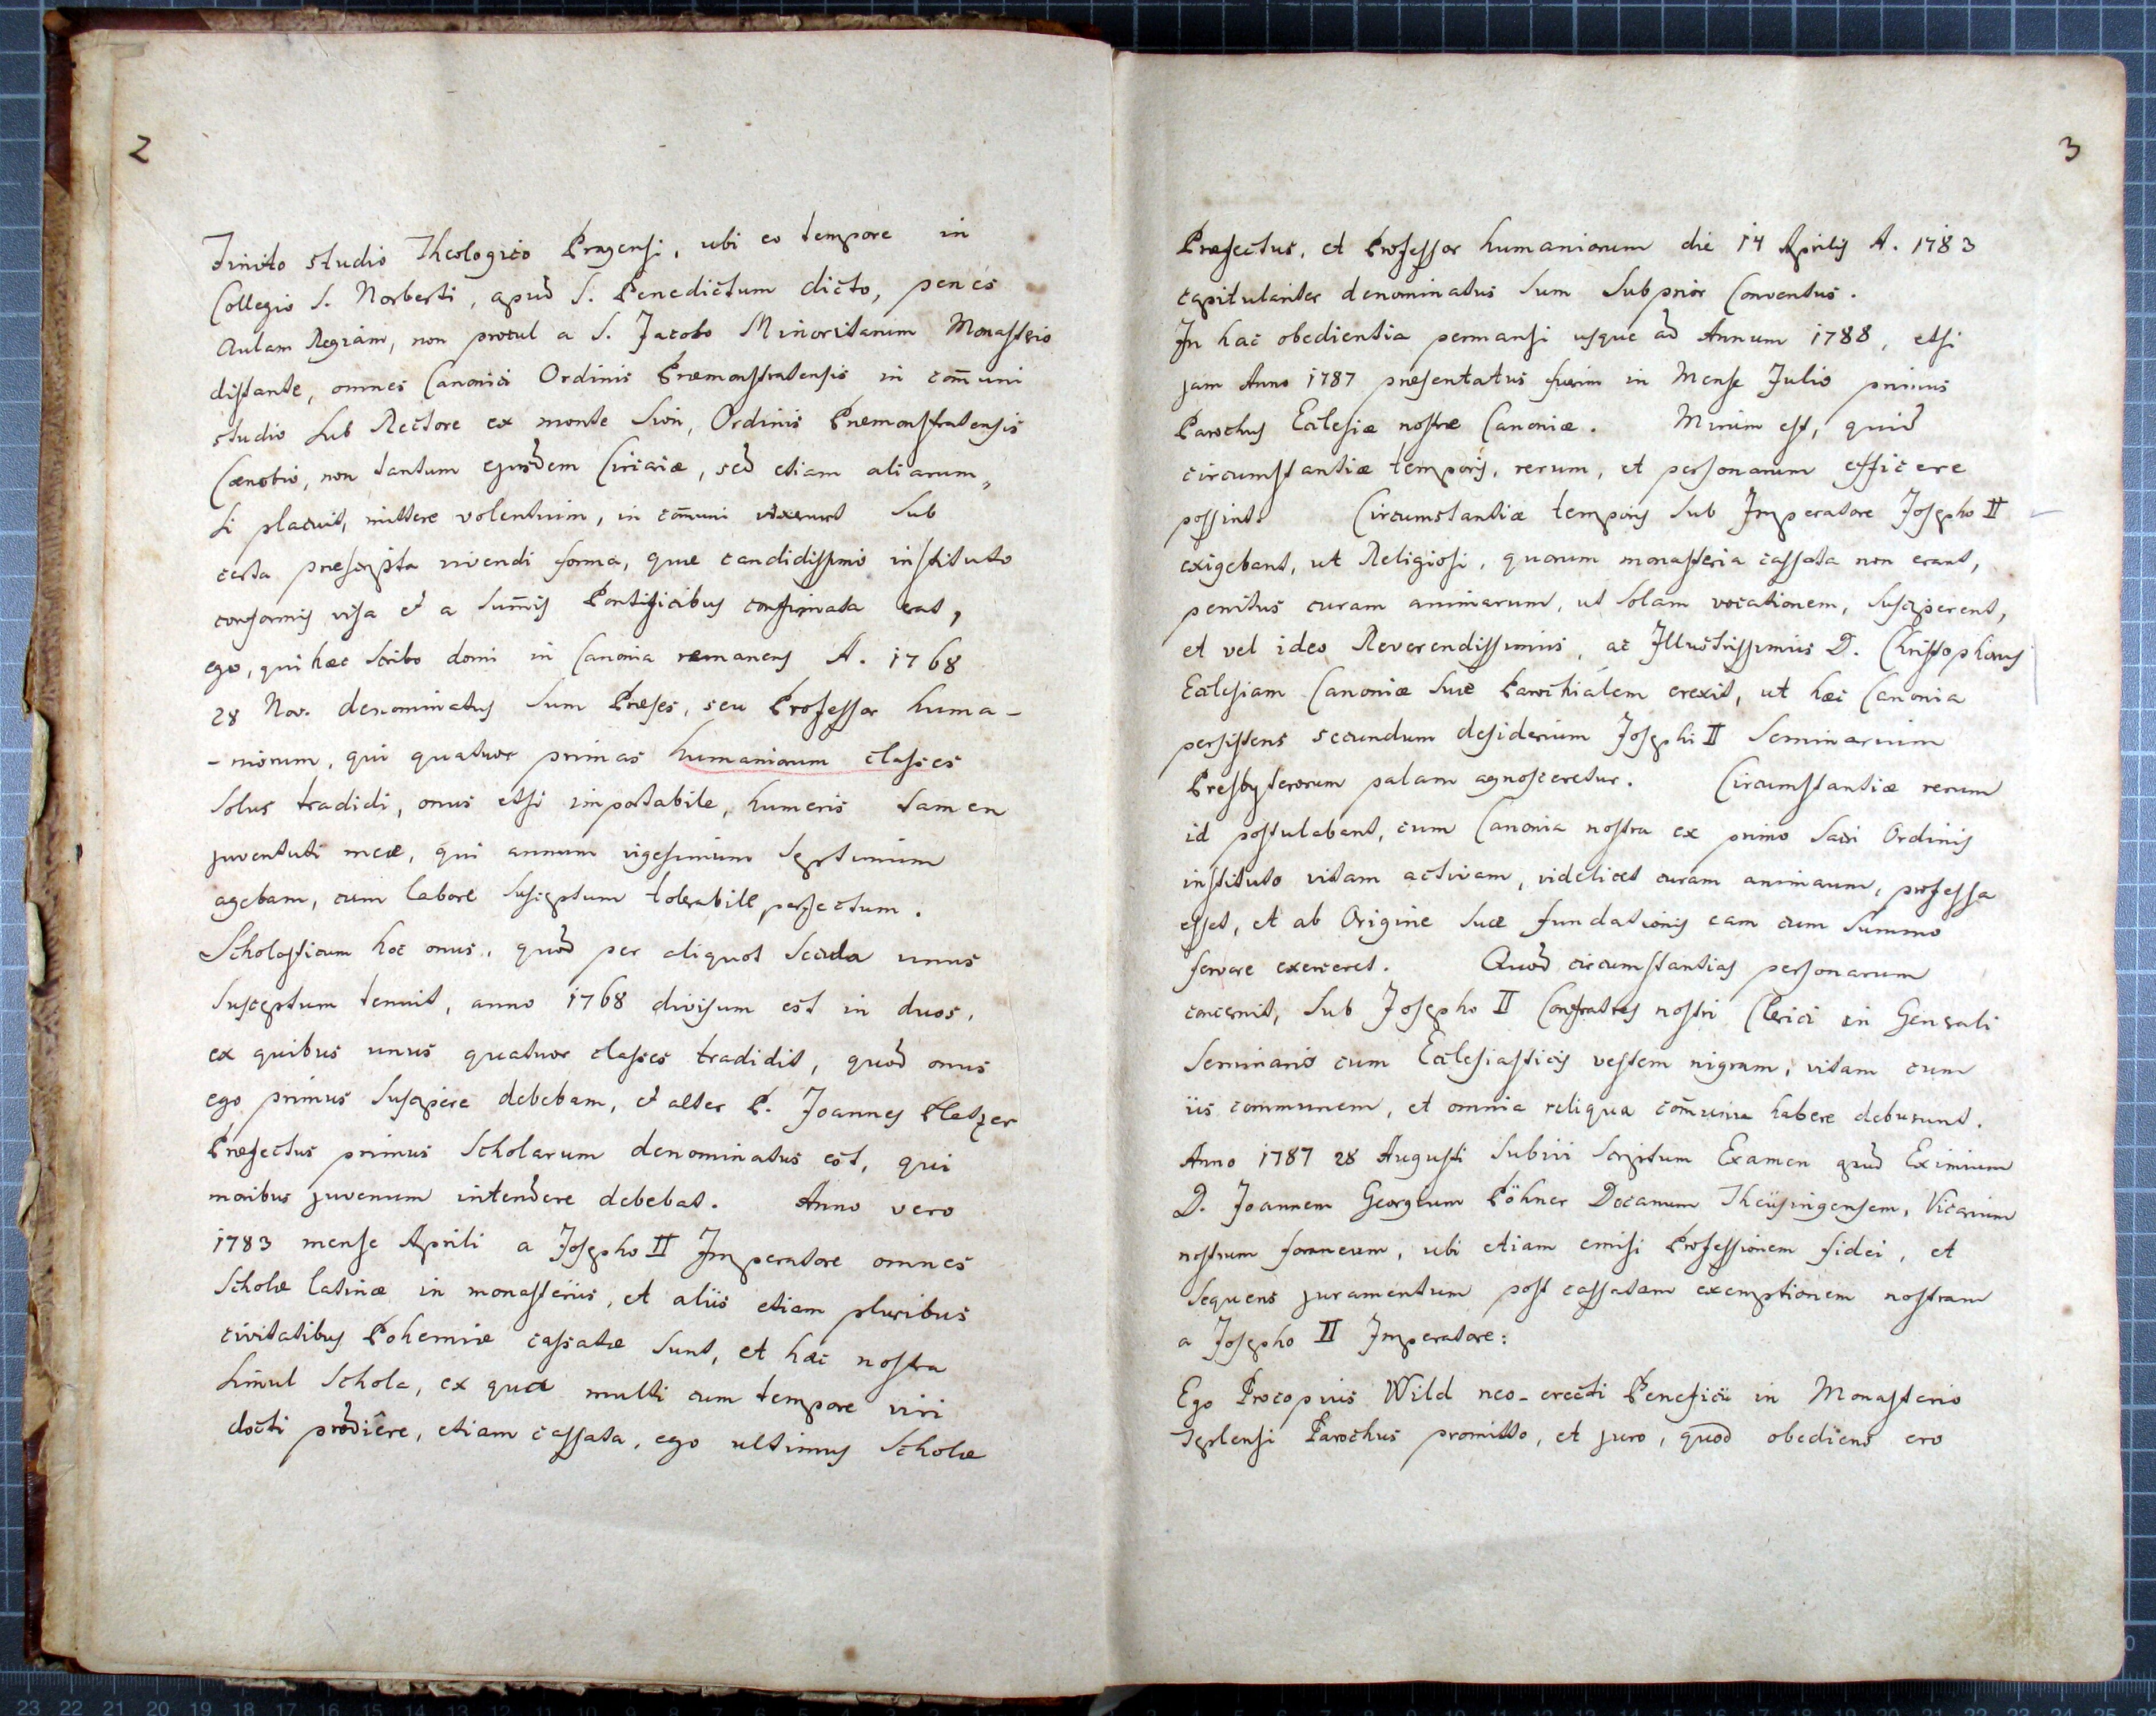 2
Finito studio Theologico Pragensi, ubi eo tempore in
Collegio S. Norberti, apud S. Benedictum dicto, penes
Aulam Regiam, non procul a S. Jacobo Minoritarum Monasterio
distante, omnes Canonici Ordinis Præmonstratensis in com̄uni
studio sub Rectore ex monte Sion, Ordinis Præmonstratensis
Cœnobio, non tantum ejusdem Circariæ, sed etiam aliarum,
si placuit, mittere volentium, in com̄uni vixerunt sub
certa præscripta vivendi forma, quæ candidissimo instituto
conformis visa et a sum̄is Pontificibus confirmata erat,
ego, qui hæc scribo domi in Canonia remanens A. 1768
28 Nov. denominatus sum Præses, seu Professor huma-
-niorum, qui quatuor primas humaniorum classes
solus tradidi, onus etsi importabile, humeris tamen
juventuti meæ, qui annum vigesimum septimum
agebam, cum labore susceptum tolerabile perfectum.
Scholasticum hoc onus, quod per aliquot secula unus
susceptum tenuit, anno 1768 divisum est in duos,
ex quibus unus quatuor classes tradidit, quod onus
ego primus suscipere debebam, et alter P. Joannes Pletzer
Præfectus primus Scholarum denominatus est, qui
moribus juvenum intendere debebat. Anno vero
1783 mense Aprili a Josepho II Imperatore omnes
Scholæ latinæ in monasteriis, et aliis etiam pluribus
civitatibus Bohemiæ cassatæ sunt, et hæc nostra
simul Schola, ex qua multi cum tempore viri
docti prodiêre, etiam cassata, ego ultimus Scholæ
3
Præfectus, et Professor humaniorum die 14 Aprilis A. 1783
capitulariter denominatus sum Subprior Conventus.
In hac obedientia permansi usque ad Annum 1788, etsi
jam Anno 1787 præsentatus fuerim in Mense Julio primus
Parochus Ecclesiæ nostræ Canoniæ. Mirum est, quid
circumstantiæ temporis, rerum, et personarum efficere
possint. Circumstantiæ temporis sub Imperatore Josepho II
exigebant, ut Religiosi, quorum monasteria cassata non erant,
penitus curam animarum, ut solam vocationem, susciperent,
et vel ideo Reverendissimus, ac Illustrissimus D. Christophorus
Ecclesiam Canoniæ suæ Parochialem erexit, ut hæc Canonia
persistens secundum desiderium Josephi II Seminarium
Presbyterorum palam agnosceretur. Circumstantiæ rerum
id postulabant, cum Canonia nostra ex primo Sacri Ordinis
instituto vitam activam, videlicet curam animarum, professa
esset, et ab Origine suæ fundationis eam cum summo
fervore exerceret. Quod circumstantias personarum
concernit, sub Josepho II Confratres nostri Clerici in Generali
Seminario cum Ecclesiasticis vestem nigram, vitam cum
iis communem, et omnia reliqua com̄unia habere debuerunt.
Anno 1787 28 Augusti subivi scriptum Examen apud Eximium
D. Joannem Georgium Pöhner Decanum Theüsingensem, Vicarium
nostrum foraneum, ubi etiam emisi Professionem fidei, et
sequens juramentum post cassatam exemptionem nostram
a Josepho II Imperatore:
Ego Procopius Wild neo-erecti Beneficii in Monasterio
Teplensi Parochus promitto, et juro, quod obediens ero